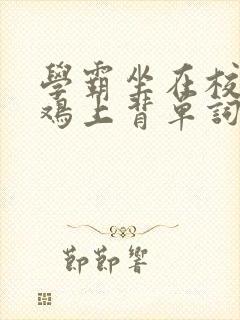 學霸坐在校
鸡上背单詞
節節響